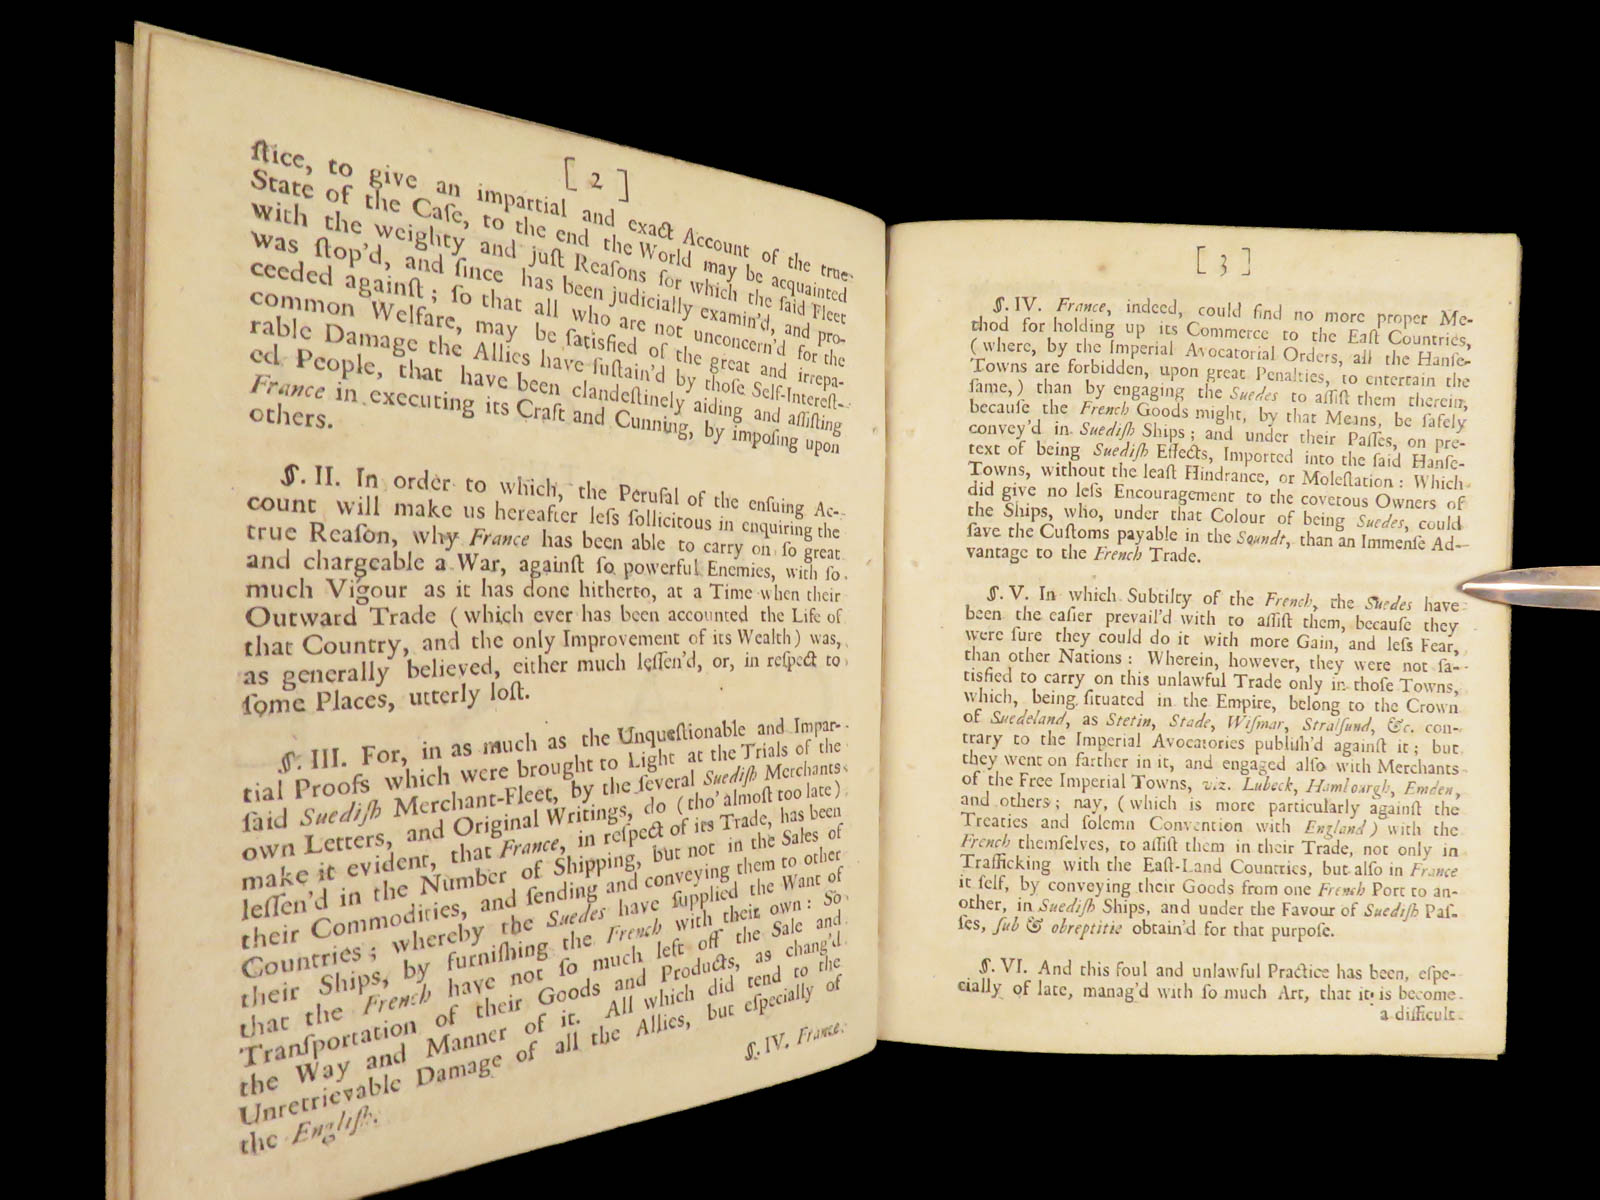 [ 2 ]
ſtice, to give an impartial and exact Account of the true
State of the Caſe, to the end the World may be acquainted
with the weighty and juſt Reaſons for which the ſaid Fleet
was ſtop'd, and ſince has been judicially examin'd, and pro-
ceeded againſt; ſo that all who are not unconcern'd for the
common Welfare, may be ſatisfied of the great and irrepa-
rable Damage the Allies have ſuſtain'd by thoſe Self-Intereſt-
ed People, that have been clandeſtinely aiding and aſſiſting
France in executing its Craft and Cunning, by impoſing upon
others.
§. II. In order to which, the Peruſal of the enſuing Ac-
count will make us hereafter leſs ſollicitous in enquiring the
true Reaſon, why France has been able to carry on ſo great
and chargeable a War, againſt ſo powerful Enemies, with ſo
much Vigour as it has done hitherto, at a Time when their
Outward Trade (which ever has been accounted the Life of
that Country, and the only Improvement of its Wealth) was,
as generally believed, either much leſſen'd, or, in reſpect to
ſome Places, utterly loſt.
§. III. For, in as much as the Unqueſtionable and Impar-
tial Proofs which were brought to Light at the Trials of the
ſaid Suediſh Merchant-Fleet, by the ſeveral Suediſh Merchants
own Letters, and Original Writings, do (tho' almoſt too late)
make it evident, that France, in reſpect of its Trade, has been
leſſen'd in the Number of Shipping, but not in the Sales of
their Commodities, and ſending and conveying them to other
Countries; whereby the Suedes have ſupplied the Want of
their Ships, by furniſhing the French with their own: So
that the French have not ſo much left off the Sale and
Tranſportation of their Goods and Products, as chang'd
the Way and Manner of it. All which did tend to the
Unretrievable Damage of all the Allies, but eſpecially of
the Engliſh.
§. IV. France.
[ 3 ]
§. IV. France, indeed, could find no more proper Me-
thod for holding up its Commerce to the Eaſt Countries,
(where, by the Imperial Avocatorial Orders, all the Hanſe-
Towns are forbidden, upon great Penalties, to entertain the
ſame,) than by engaging the Suedes to aſſiſt them therein,
becauſe the French Goods might, by that Means, be ſafely
convey'd in Suediſh Ships; and under their Paſſes, on pre-
text of being Suediſh Effects, Imported into the ſaid Hanſe-
Towns, without the leaſt Hindrance, or Moleſtation: Which
did give no leſs Encouragement to the covetous Owners of
the Ships, who, under that Colour of being Suedes, could
ſave the Cuſtoms payable in the Soundt, than an Immenſe Ad-
vantage to the French Trade.
§. V. In which Subtilty of the French, the Suedes have
been the eaſier prevail'd with to aſſiſt them, becauſe they
were ſure they could do it with more Gain, and leſs Fear,
than other Nations: Wherein, however, they were not ſa-
tisfied to carry on this unlawful Trade only in thoſe Towns,
which, being ſituated in the Empire, belong to the Crown
of Suedeland, as Stetin, Stade, Wiſmar, Stralſund, &c. con-
trary to the Imperial Avocatories publiſh'd againſt it; but
they went on farther in it, and engaged alſo with Merchants
of the Free Imperial Towns, viz. Lubeck, Hamlourgh, Emden,
and others; nay, (which is more particularly againſt the
Treaties and ſolemn Convention with England) with the
French themſelves, to aſſiſt them in their Trade, not only in
Trafficking with the Eaſt-Land Countries, but alſo in France
it ſelf, by conveying their Goods from one French Port to an-
other, in Suediſh Ships, and under the Favour of Suediſh Paſ-
ſes, ſub & obreptitie obtain'd for that purpoſe.
§. VI. And this foul and unlawful Practice has been, eſpe-
cially of late, manag'd with ſo much Art, that it is become
a difficult